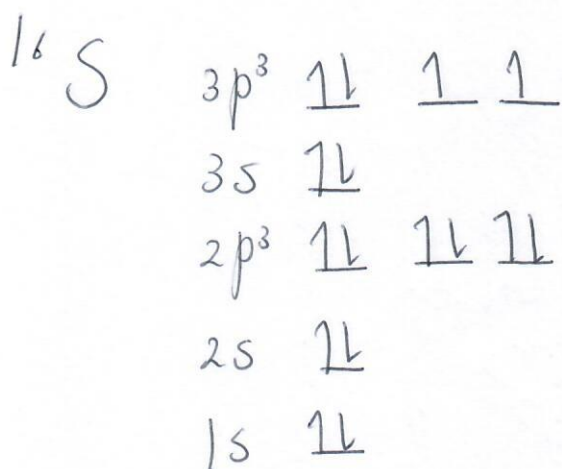 ¹⁶S 3p³ 1l 1 1
3s 1l
2p³ 1l 1l 1l
2s 1l
1s 1l